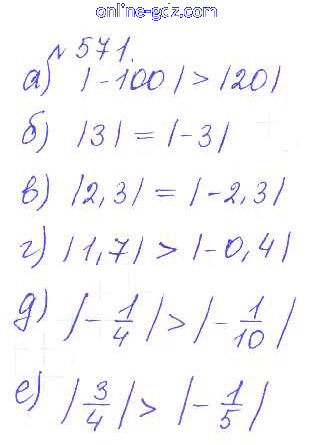 online-gdz.com
№ 571.
а) |-100| > |20|
б) |3| = |-3|
в) |2,3| = |-2,3|
г) |1,7| > |-0,4|
д) |-1/4| > |-1/10|
е) |3/4| > |-1/5|